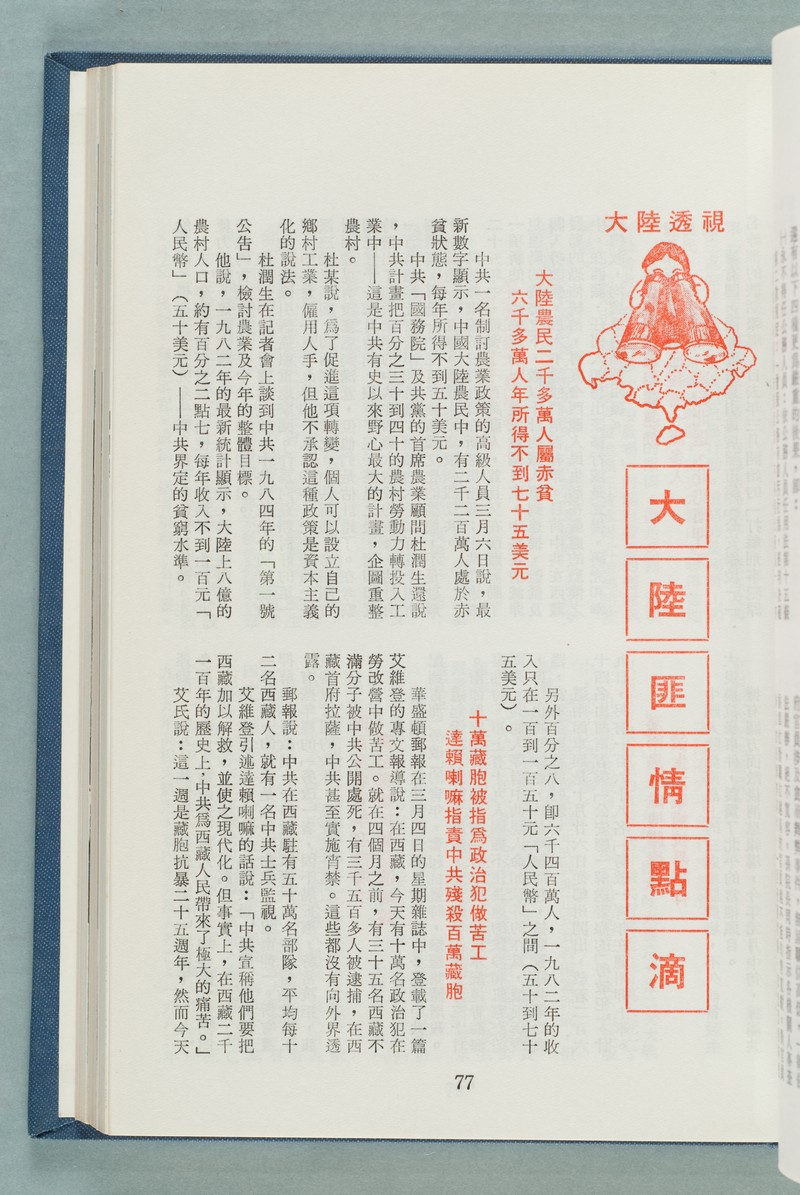 大陸透視
大陸匪情點滴
大陸農民二千多萬人屬赤貧
六千多萬人年所得不到七十五美元
中共一名制訂農業政策的高級人員三月六日說，最
新數字顯示，中國大陸農民中，有二千二百萬人處於赤
貧狀態，每年所得不到五十美元。
中共「國務院」及共黨的首席農業顧問杜潤生還說
，中共計畫把百分之三十到四十的農村勞動力轉投入工
業中——這是中共有史以來野心最大的計畫，企圖重整
農村。
杜某說，爲了促進這項轉變，個人可以設立自己的
鄉村工業，僱用人手，但他不承認這種政策是資本主義
化的說法。
杜潤生在記者會上談到中共一九八四年的「第一號
公告」，檢討農業及今年的整體目標。
他說，一九八二年的最新統計顯示，大陸上八億的
農村人口，約有百分之二點七，每年收入不到一百元「
人民幣」（五十美元）——中共界定的貧窮水準。
另外百分之八，卽六千四百萬人，一九八二年的收
入只在一百到一百五十元「人民幣」之間（五十到七十
五美元）。
十萬藏胞被指爲政治犯做苦工
達賴喇嘛指責中共殘殺百萬藏胞
華盛頓郵報在三月四日的星期雜誌中，登載了一篇
艾維登的專文報導說：在西藏，今天有十萬名政治犯在
勞改營中做苦工。就在四個月之前，有三十五名西藏不
滿分子被中共公開處死，有三千五百多人被逮捕，在西
藏首府拉薩，中共甚至實施宵禁。這些都沒有向外界透
露。
郵報說：中共在西藏駐有五十萬名部隊，平均每十
二名西藏人，就有一名中共士兵監視。
艾維登引述達賴喇嘛的話說：「中共宣稱他們要把
西藏加以解救，並使之現代化。但事實上，在西藏二千
一百年的歷史上，中共爲西藏人民帶來了極大的痛苦。」
艾氏說：這一週是藏胞抗暴二十五週年，然而今天
77